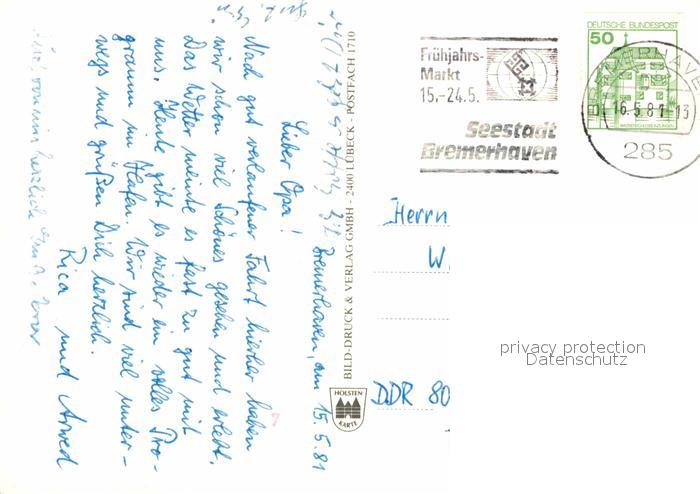 Bremerhaven, am 15.5.81
Lieber Opa!
Nach gut verlaufener Fahrt hierher haben
wir schon viel Schönes gesehen und erlebt.
Das Wetter meinte es fast zu gut mit
uns. Heute gibt es wieder ein volles Pro-
gramm im Hafen. Wir sind viel unter-
wegs und grüßen Dich herzlich.
Rica und Arwed
BILD-DRUCK & VERLAG GMBH - 2400 LÜBECK - POSTFACH 1710
HOLSTEN
KARTE
Frühjahrs-
Markt
15.-24.5.
Seestadt
Bremerhaven
DEUTSCHE BUNDESPOST
50
BREMERHAVEN
16.5.81-13
285
Herrn
W.
DDR 80
privacy protection
Datenschutz